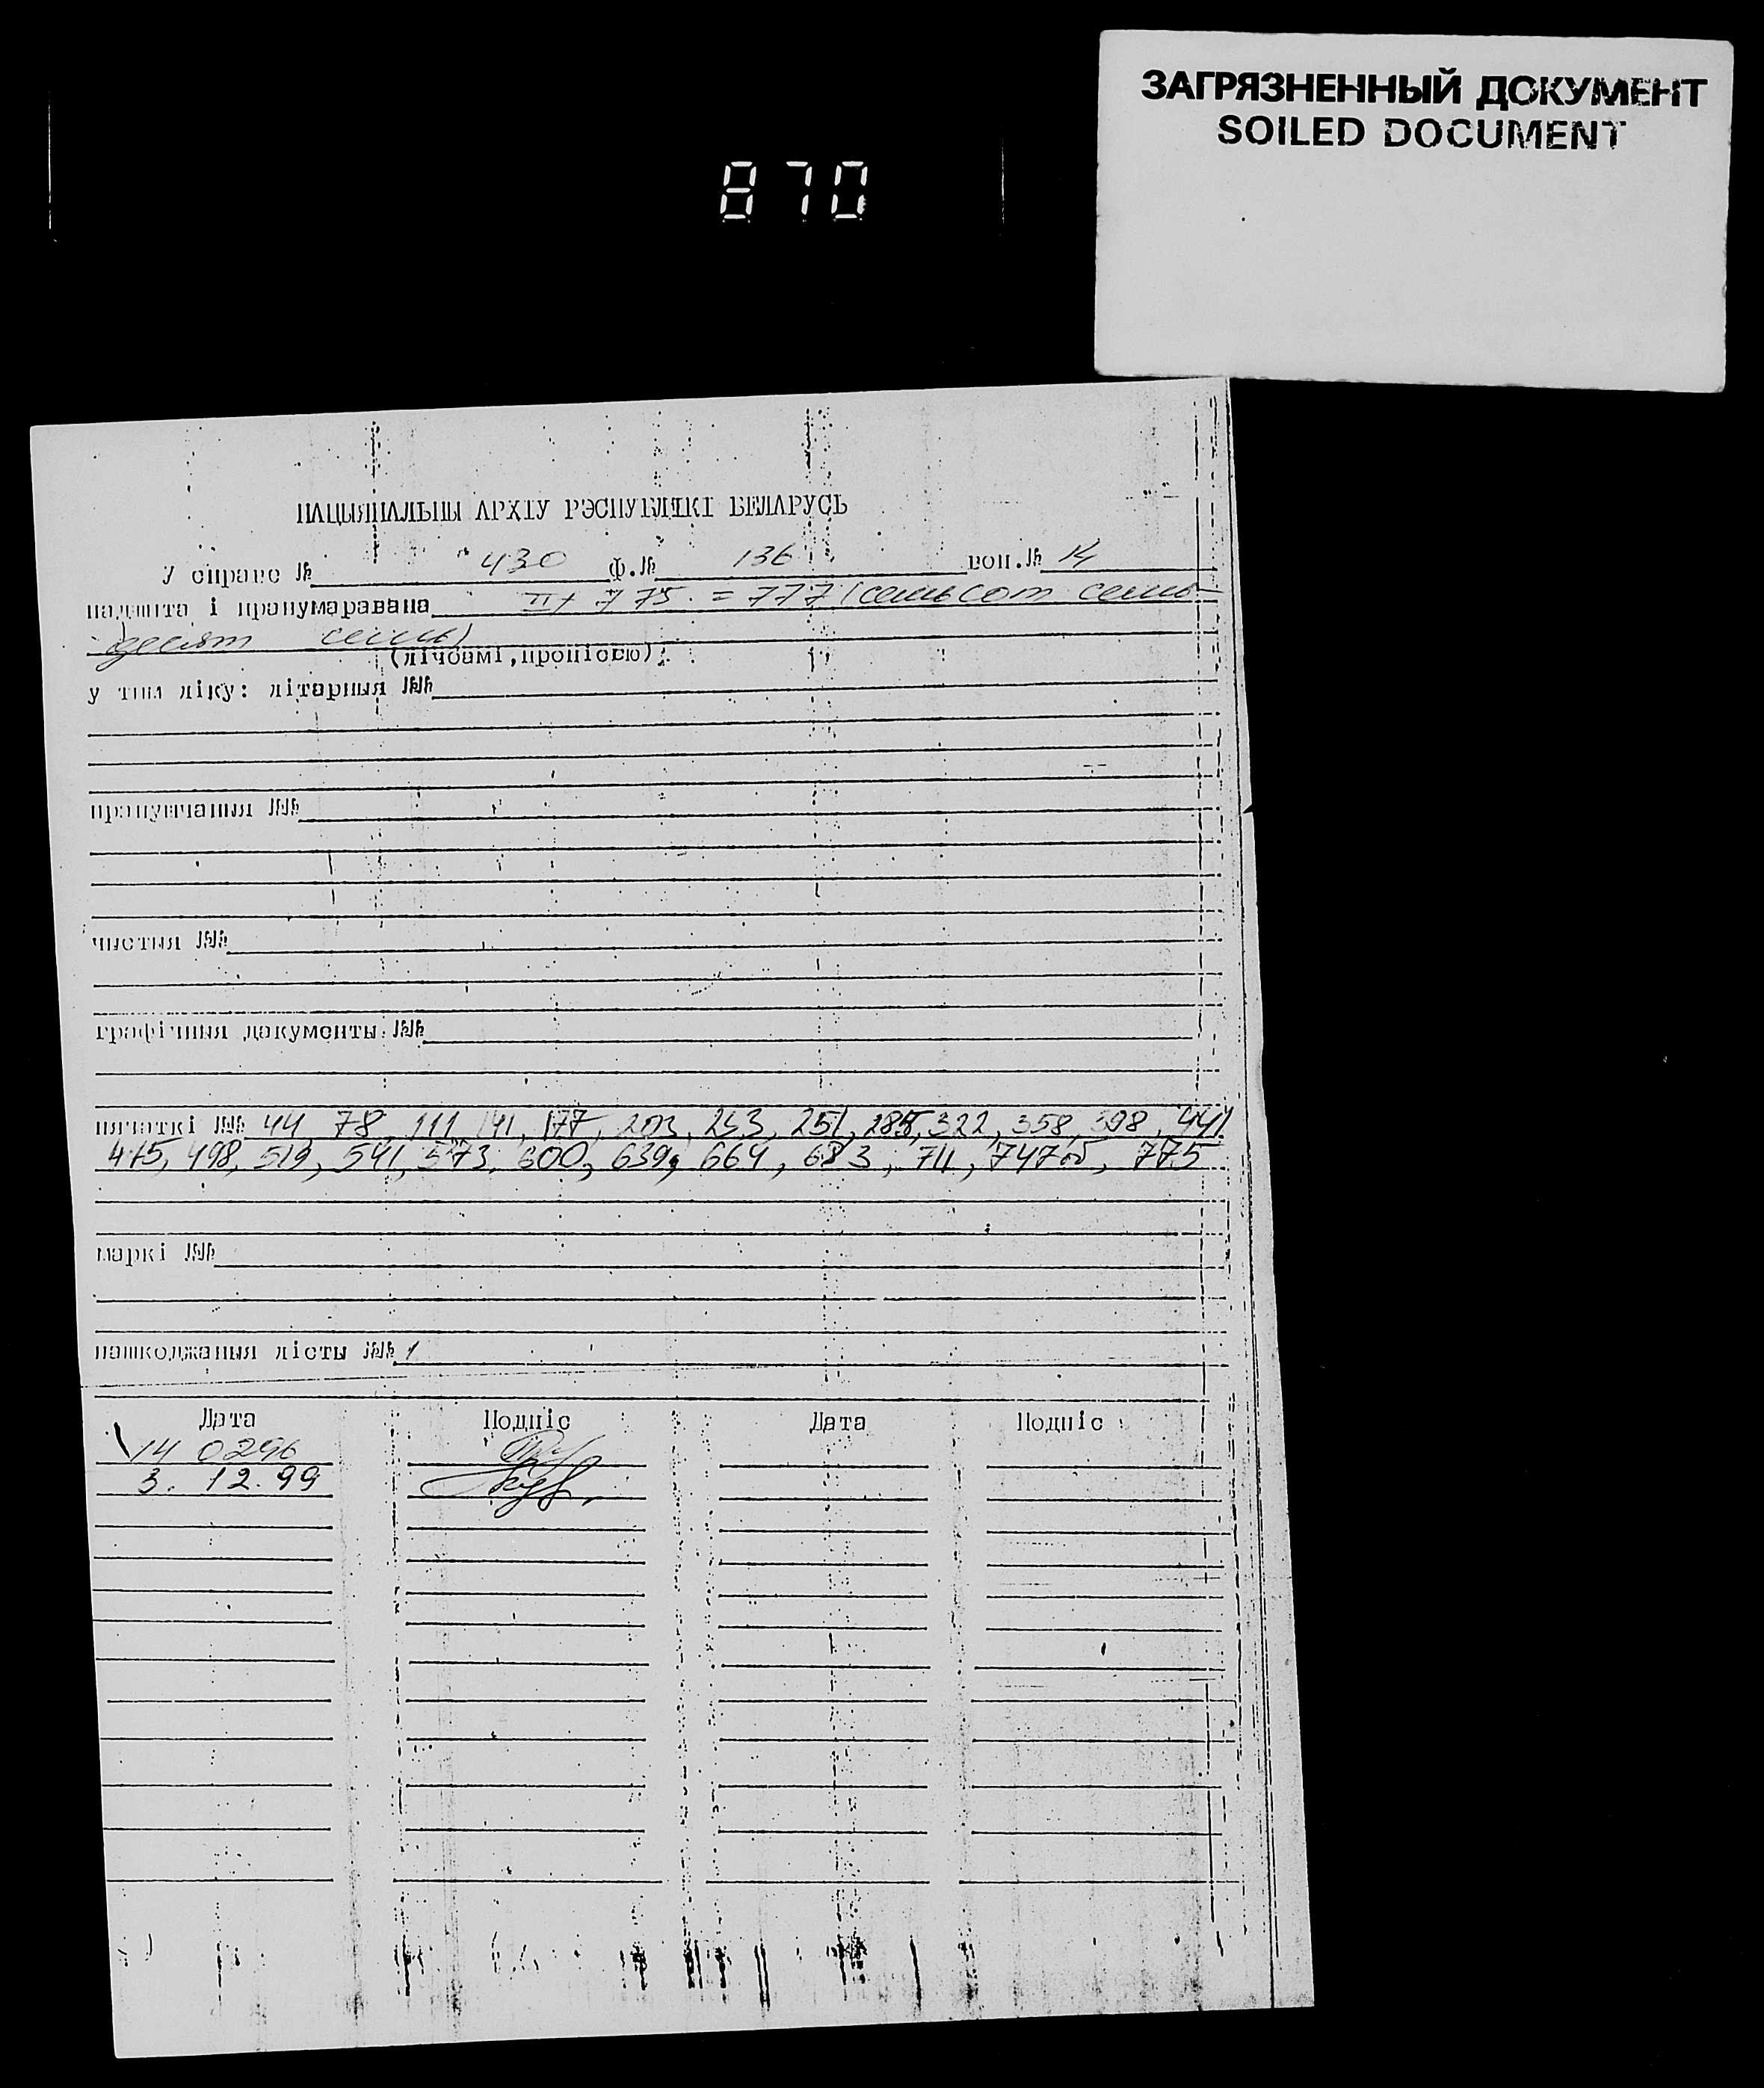 ЗАГРЯЗНЕННЫЙ ДОКУМЕНТ
SOILED DOCUMENT
870
НАЦЫЯНАЛЬНЫ АРХІУ РЭСПУБЛІКІ БЕЛАРУСЬ
У справе № 430 ф.№ 136 воп.№ 14
падшита і пранумаравана II + 775 = 777 (семьсот семь-
десят семь)
(лічбамі, пропісью)
у тым ліку: літарныя №№
прапушчаныя №№
чистыя №№
графічныя дакументы №№
пячаткі №№ 44 78, 111, 141, 177, 203, 233, 251, 285, 322, 358, 398, 441
475, 498, 519, 541, 573, 600, 639, 664, 683, 711, 747об, 775
маркі №№
пашкоджаныя лісты №№ 1
Дата Подпіс Дата Подпіс
14 0296
3. 12.99